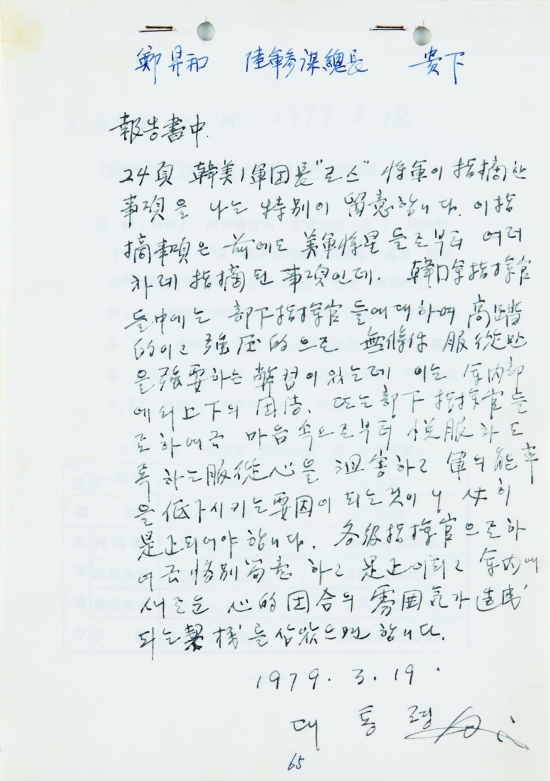 鄭昇和 陸軍參謀總長 貴下
報告書中
24頁 韓美1軍团長"로스" 将軍이 指摘한
事項을 나는 特別이 留意합니다. 이指
摘事項은 前에도 美軍将星들로부터 여러
차례 指摘된 事項인데. 韓国軍指揮官
들中에는 部下指揮官들에대하여 高踏
的이고 強压的으로 無條件 服從만
을 強要하는 弊습이 있는데 이는 軍内部
에서 上下의 团結, 또는 部下 指揮官들
로하여금 마음속으로부터 悅服하도
록하는 服從心을 沮害하고 軍의 能率
을 低下시키는 要因이 되는것이니 必히
是正되어야 합니다. 各級指揮官으로하
여금 特別留意 하고 是正이되고 軍内에
새로운 心的团合의 雰囲気가 造成
되는 契机를 삼았으면 합니다.
1979. 3. 19.
대통령
65